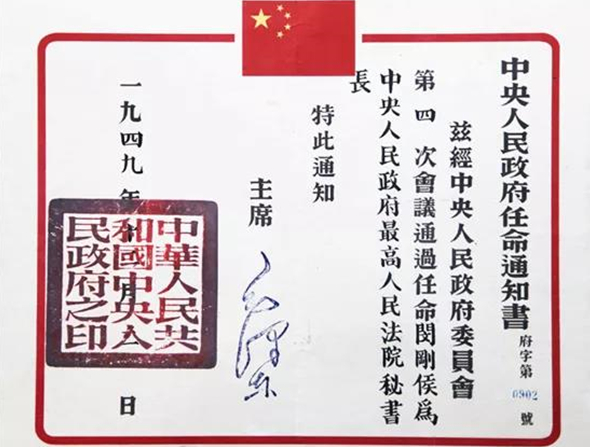 中央人民政府任命通知書
府字第0902號
茲經中央人民政府委員會
第四次會議通過任命閔剛侯爲
中央人民政府最高人民法院秘書
長
特此通知
主席
毛澤東
一九四九年十月日
中華人民共
和國中央人
民政府之印